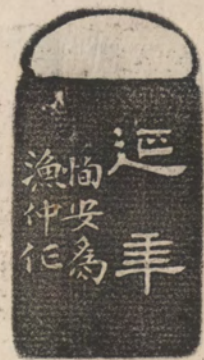 延年
恂安為
漁仲作